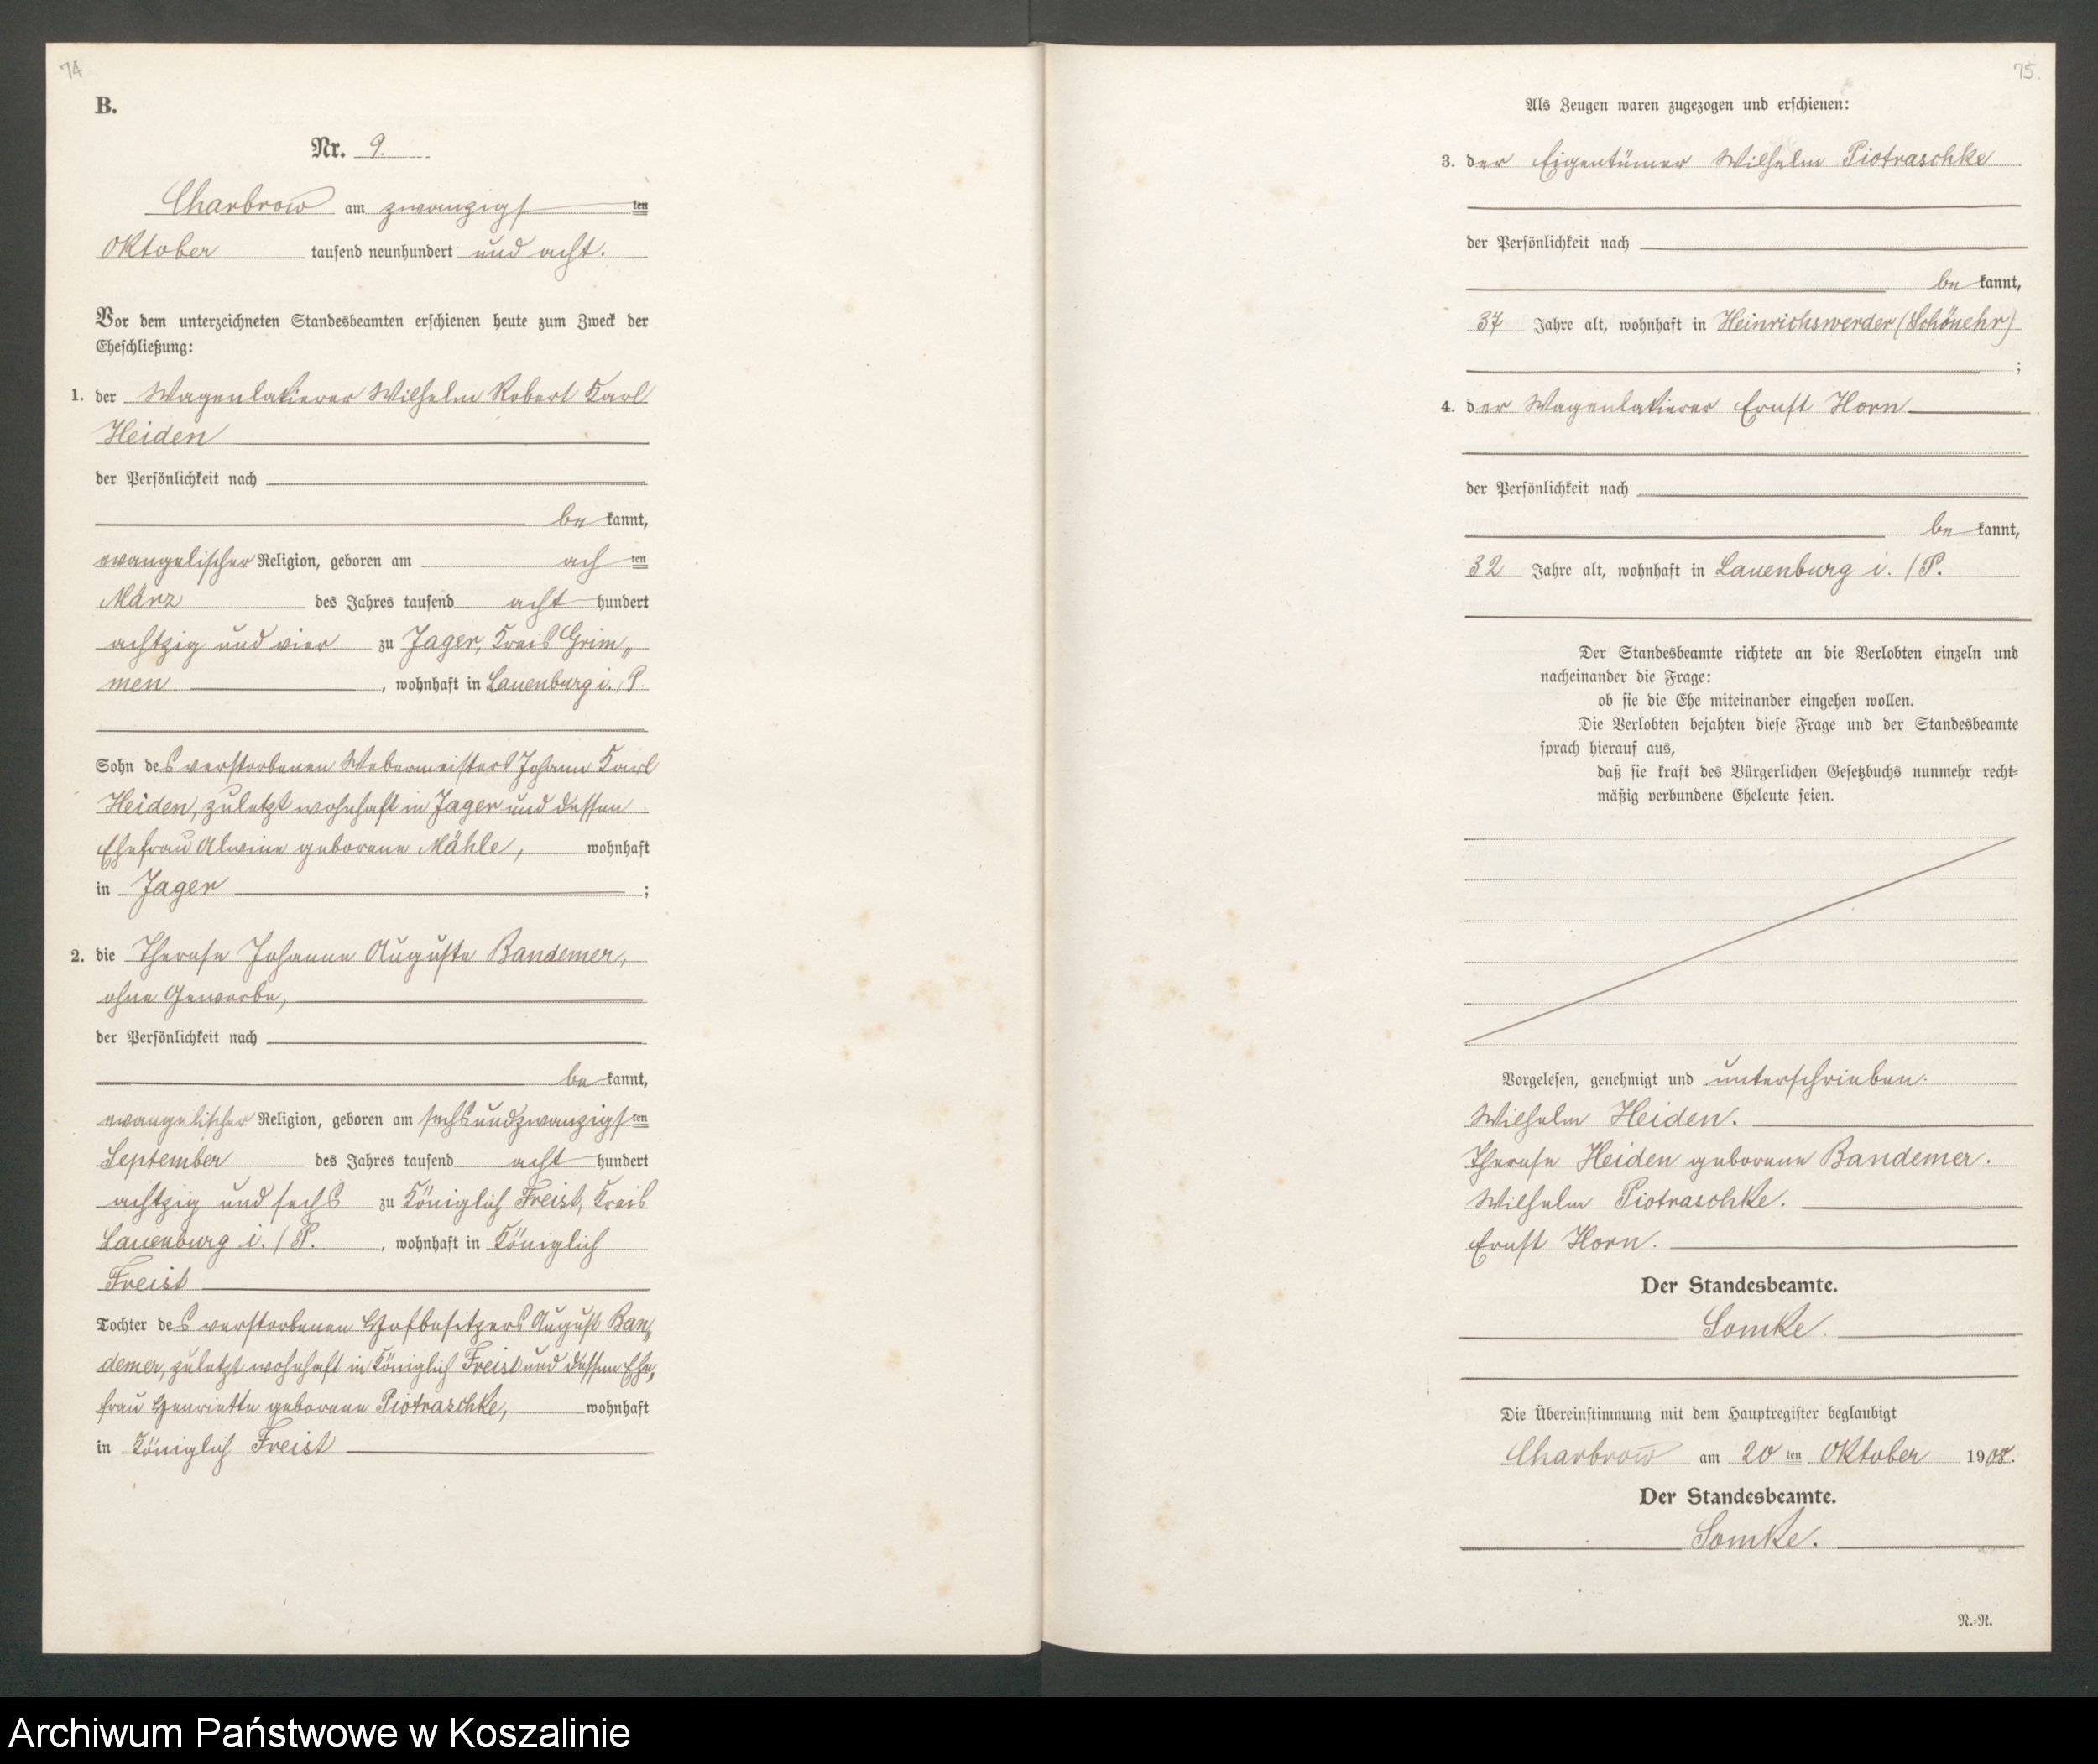 74
B.
Nr. 9.
Charbrow am zwanzigsten
Oktober tausend neunhundert und acht.
Vor dem unterzeichneten Standesbeamten erschienen heute zum Zweck der
Eheschließung:
1. der Wagenlakierer Wilhelm Robert Karl
Heiden
der Persönlichkeit nach
be kannt,
evangelischer Religion, geboren am achten
März des Jahres tausend acht hundert
achtzig und vier zu Jager, Kreis Grim„
men, wohnhaft in Lauenburg i./P.
Sohn des verstorbenen Webermeisters Johann Karl
Heiden, zuletzt wohnhaft in Jager und dessen
Ehefrau Alwine geborene Mähle, wohnhaft
in Jager ;
2. die Therese Johanne Auguste Bandemer,
ohne Gewerbe,
der Persönlichkeit nach
be kannt,
evangelischer Religion, geboren am sechsundzwanzigsten
September des Jahres tausend acht hundert
achtzig und sechs zu Königlich Freist, Kreis
Lauenburg i./P. , wohnhaft in Königlich
Freist
Tochter des verstorbenen Hofbesitzers August Ban„
demer, zuletzt wohnhaft in Königlich Freist und dessen Ehe„
frau Henriette geborene Piotraschke, wohnhaft
in Königlich Freist
75.
Als Zeugen waren zugezogen und erschienen:
3. der Eigentümer Wilhelm Piotraschke
der Persönlichkeit nach
be kannt,
37 Jahre alt, wohnhaft in Heinrichswerder (Schönehr)
;
4. der Wagenlakierer Ernst Horn
der Persönlichkeit nach
be kannt,
32 Jahre alt, wohnhaft in Lauenburg i./P.
Der Standesbeamte richtete an die Verlobten einzeln und
nacheinander die Frage:
ob sie die Ehe miteinander eingehen wollen.
Die Verlobten bejahten diese Frage und der Standesbeamte
sprach hierauf aus,
daß sie kraft des Bürgerlichen Gesetzbuchs nunmehr recht-
mäßig verbundene Eheleute seien.
Vorgelesen, genehmigt und unterschrieben.
Wilhelm Heiden.
Therese Heiden geborene Bandemer.
Wilhelm Piotraschke.
Ernst Horn.
Der Standesbeamte.
Somke.
Die Übereinstimmung mit dem Hauptregister beglaubigt
Charbrow am 20ten Oktober 1908.
Der Standesbeamte.
Somke.
N.-R.
Archiwum Państwowe w Koszalinie